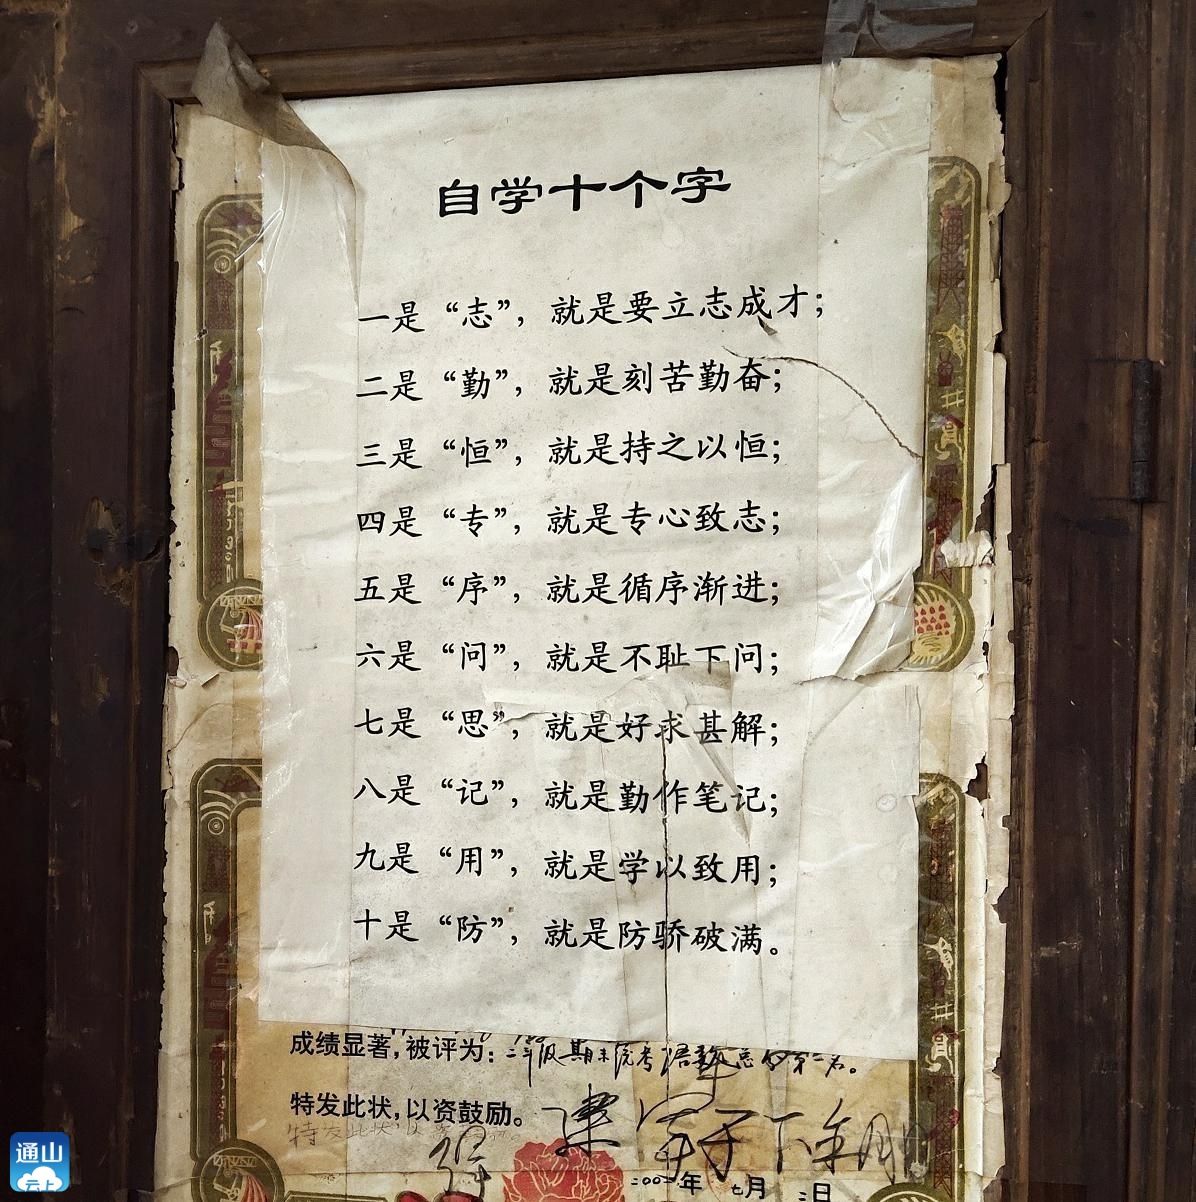 自学十个字
一是“志”，就是要立志成才；
二是“勤”，就是刻苦勤奋；
三是“恒”，就是持之以恒；
四是“专”，就是专心致志；
五是“序”，就是循序渐进；
六是“问”，就是不耻下问；
七是“思”，就是好求甚解；
八是“记”，就是勤作笔记；
九是“用”，就是学以致用；
十是“防”，就是防骄破满。
成绩显著，被评为：二年级期末统考语数总分第二名。
特发此状，以资鼓励。
年 七月 二日
通山
云上